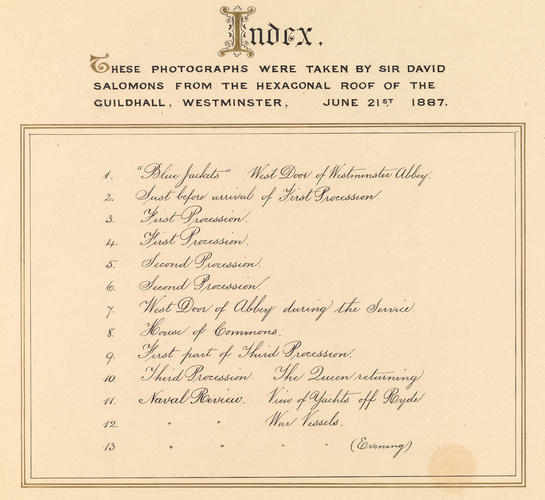 Index.
THESE PHOTOGRAPHS WERE TAKEN BY SIR DAVID
SALOMONS FROM THE HEXAGONAL ROOF OF THE
GUILDHALL, WESTMINSTER, JUNE 21ST 1887.
1. "Blue Jackets" West Door of Westminster Abbey.
2. Just before arrival of First Procession
3. First Procession.
4. First Procession.
5. Second Procession.
6. Second Procession.
7. West Door of Abbey during the Service.
8. House of Commons.
9. First part of Third Procession.
10. Third Procession. The Queen returning
11. Naval Review. View of Yachts off Ryde
12. " " War Vessels.
13 " " " " (Evening)